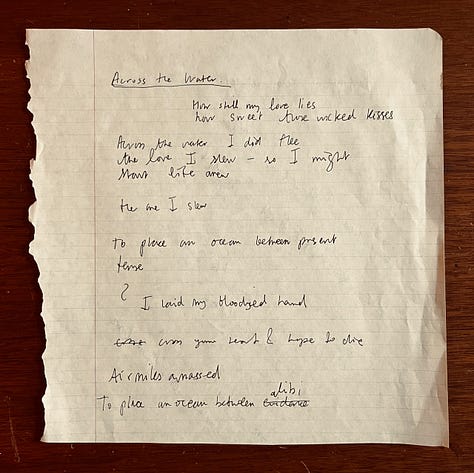 Across the Water.
How still my love lies
how sweet those wicked kisses
Across the water I did flee
the love I slew – so I might
start life anew
the one I slew
To place an ocean between present
tense
?
I laid my bloodied hand
cross your heart & hope to die
Airmiles amassed
alibi
To place an ocean between evidence